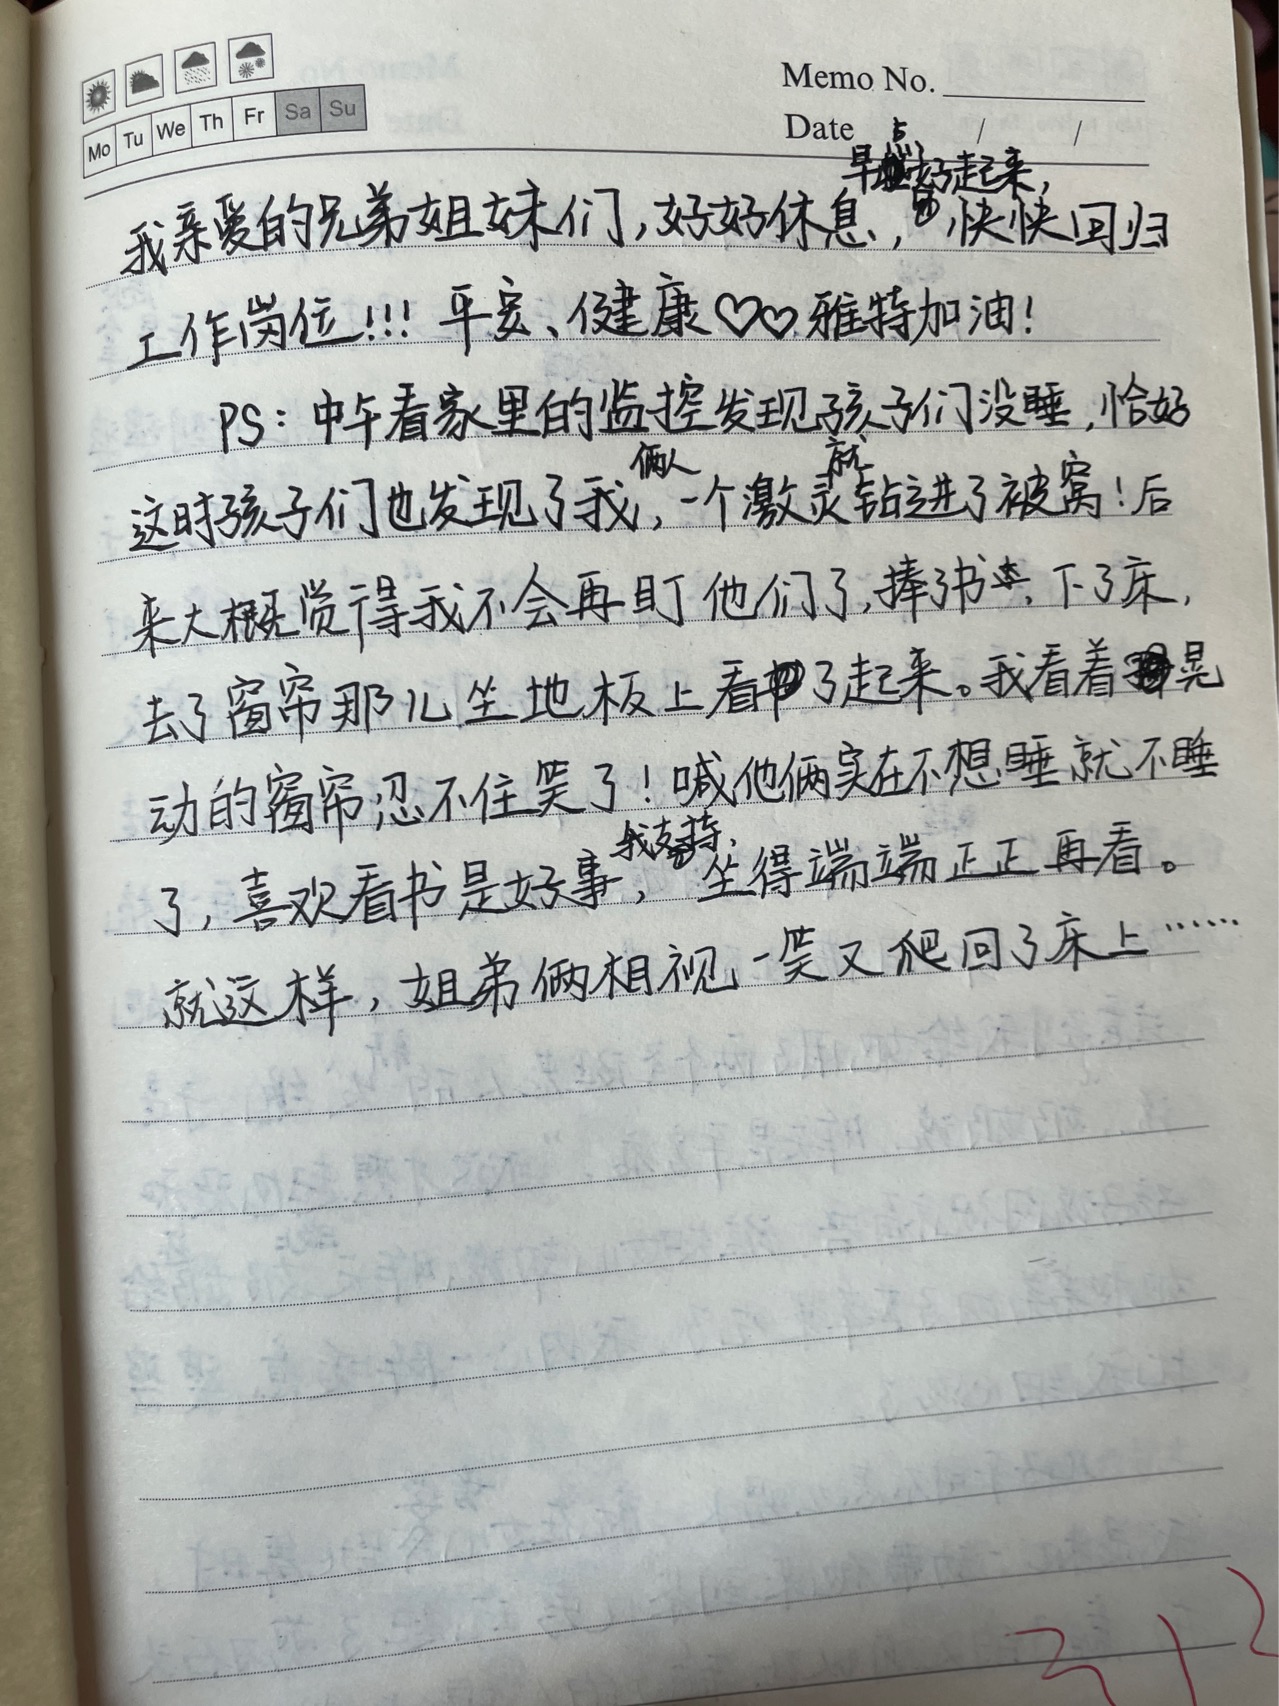 Memo No.
Mo Tu We Th Fr Sa Su
Date / /
早点好起来,
我亲爱的兄弟姐妹们,好好休息,快快回归
工作岗位!!!平安、健康♡♡雅特加油!
PS:中午看家里的监控发现孩子们没睡,恰好
俩人 就
这时孩子们也发现了我,一个激灵钻进了被窝!后
来大概觉得我不会再盯他们了,捧了书 下了床,
去了窗帘那儿坐地板上看了起来。我看着晃
动的窗帘忍不住笑了!喊他俩实在不想睡就不睡
我支持,
了,喜欢看书是好事,坐得端端正正再看。
就这样,姐弟俩相视一笑又爬回了床上……